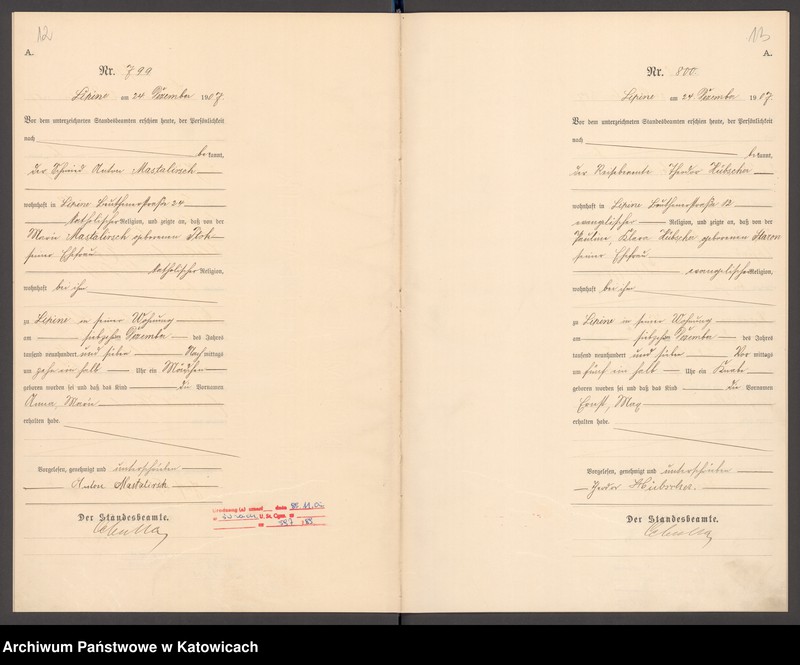 12
A.
Nr. 799
Lipine am 24 Dezember 1907.
Vor dem unterzeichneten Standesbeamten erschien heute, der Persönlichkeit
nach
bekannt,
der Schmied Anton Mastalirsch
wohnhaft in Lipine Beuthenerstraße 24
katholischer Religion, und zeigte an, daß von der
Marie Mastalirsch geborenen
seiner Ehefrau
katholischer Religion,
wohnhaft bei ihm
zu Lipine in seiner Wohnung
am siebzehn Dezember des Jahres
tausend neunhundert und sieben Nachmittags
um zehn ein halb Uhr ein Mädchen
geboren worden sei und daß das Kind die Vornamen
Anna, Marie
erhalten habe.
Vorgelesen, genehmigt und unterschrieben
Anton Mastalirsch
Der Standesbeamte.
13
A.
Nr. 800
Lipine am 24 Dezember 1907.
Vor dem unterzeichneten Standesbeamten erschien heute, der Persönlichkeit
nach
bekannt,
der Theodor Hübscher
wohnhaft in Lipine Beuthenerstraße 12
evangelischer Religion, und zeigte an, daß von der
Pauline, Klara Hübscher geborenen
seiner Ehefrau
evangelischer Religion,
wohnhaft bei ihm
zu Lipine in seiner Wohnung
am siebzehn Dezember des Jahres
tausend neunhundert und sieben Vor mittags
um fünf ein halb Uhr ein Knabe
geboren worden sei und daß das Kind die Vornamen
Ernst, Max
erhalten habe.
Vorgelesen, genehmigt und unterschrieben
Der Standesbeamte.
Archiwum Państwowe w Katowicach